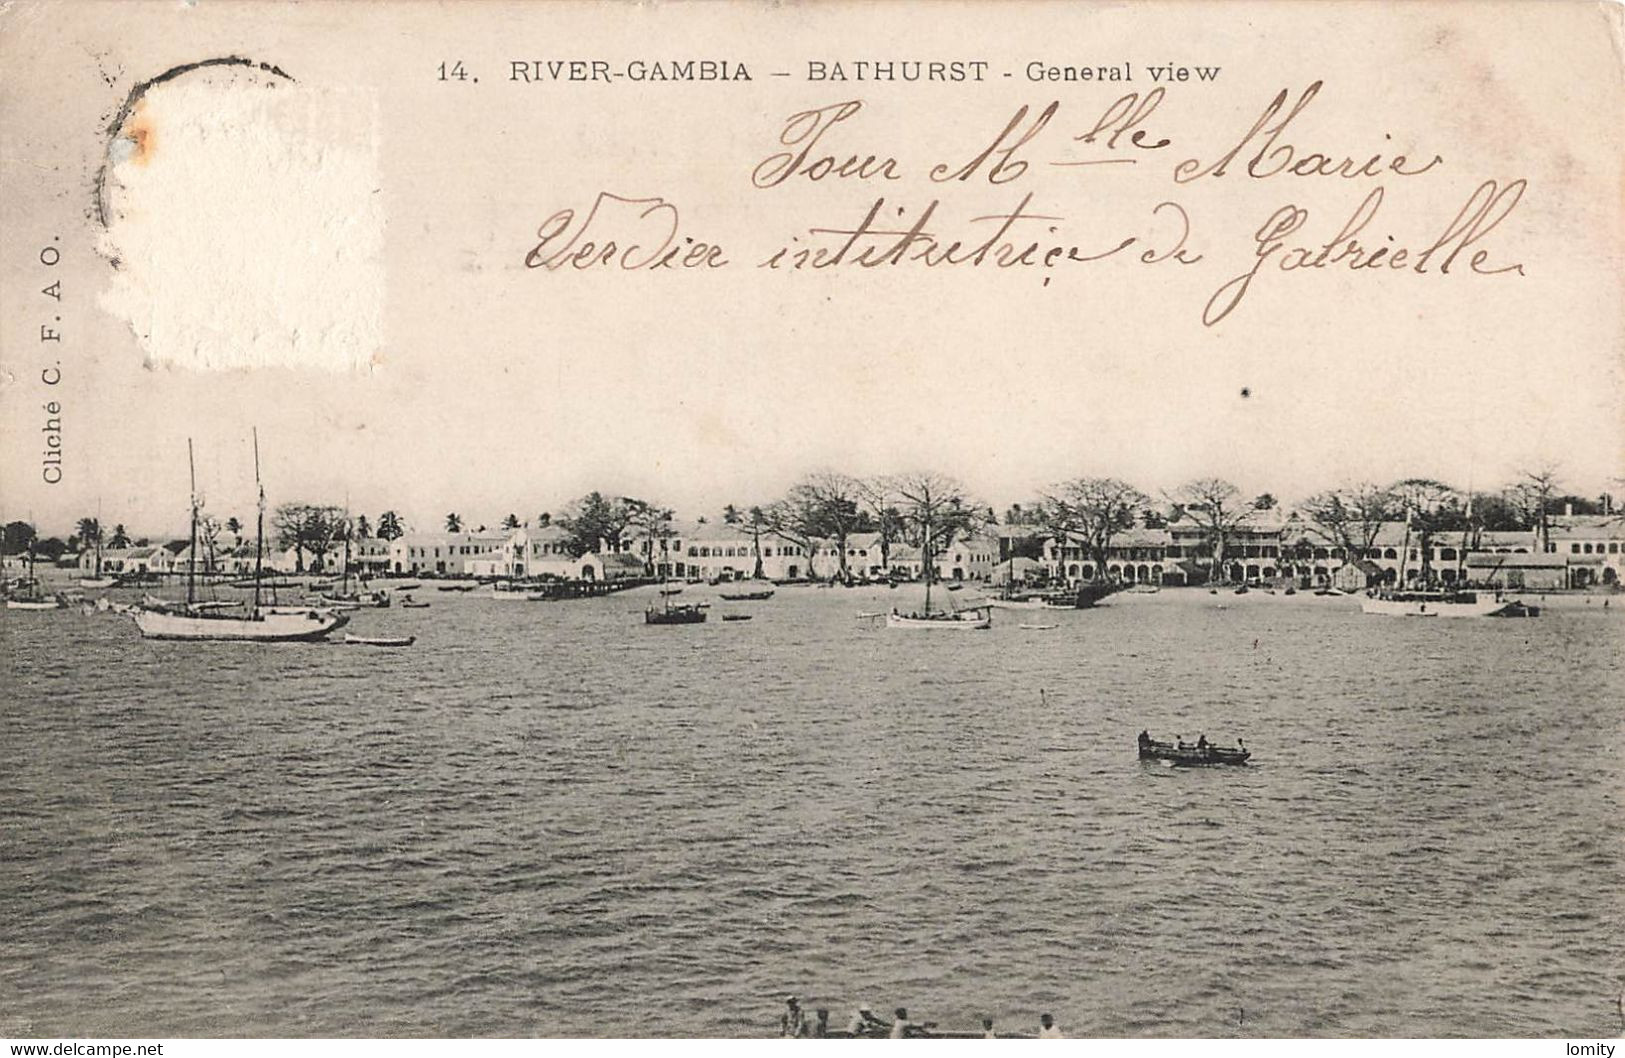 14. RIVER-GAMBIA – BATHURST - General view
Pour Mlle Marie
Verdier intitutriçe de Gabrielle
Cliché C. F. A O.
www.delcampe.net
lomity